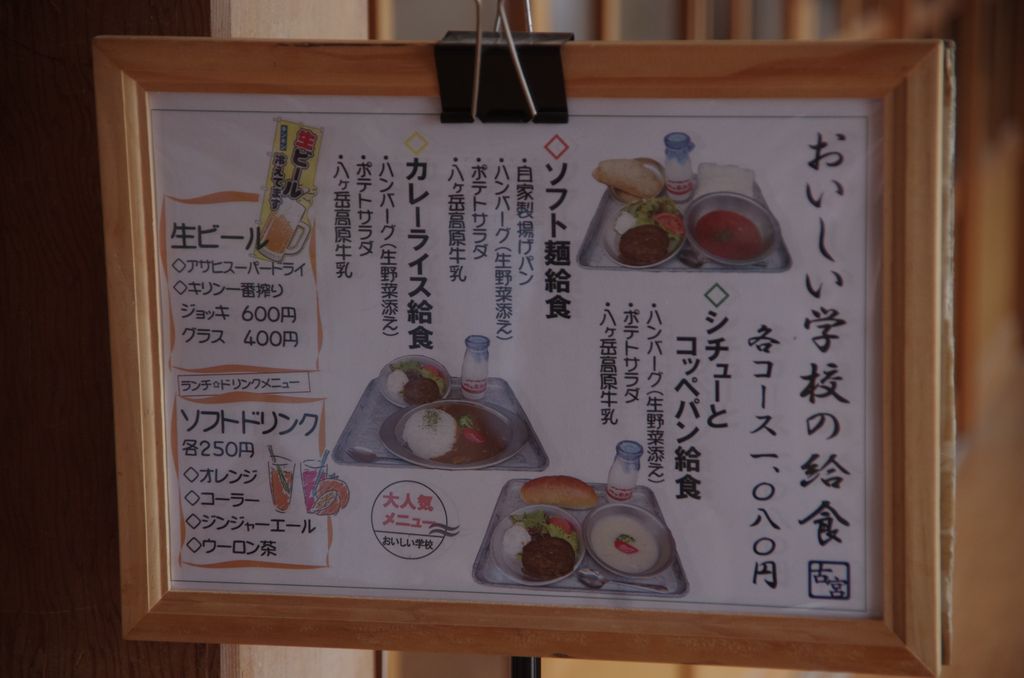 おいしい学校の給食
古宮
各コース 一、〇八〇円
◇シチューと
コッペパン給食
・ハンバーグ(生野菜添え)
・ポテトサラダ
・八ヶ岳高原牛乳
◇ソフト麺給食
・自家製揚げパン
・ハンバーグ(生野菜添え)
・ポテトサラダ
・八ヶ岳高原牛乳
◇カレーライス給食
・ハンバーグ(生野菜添え)
・ポテトサラダ
・八ヶ岳高原牛乳
大人気
メニュー
おいしい学校
生ビール
冷えてます
生ビール
◇アサヒスーパードライ
◇キリン一番搾り
ジョッキ 600円
グラス 400円
ランチ☆ドリンクメニュー
ソフトドリンク
各250円
◇オレンジ
◇コーラー
◇ジンジャーエール
◇ウーロン茶